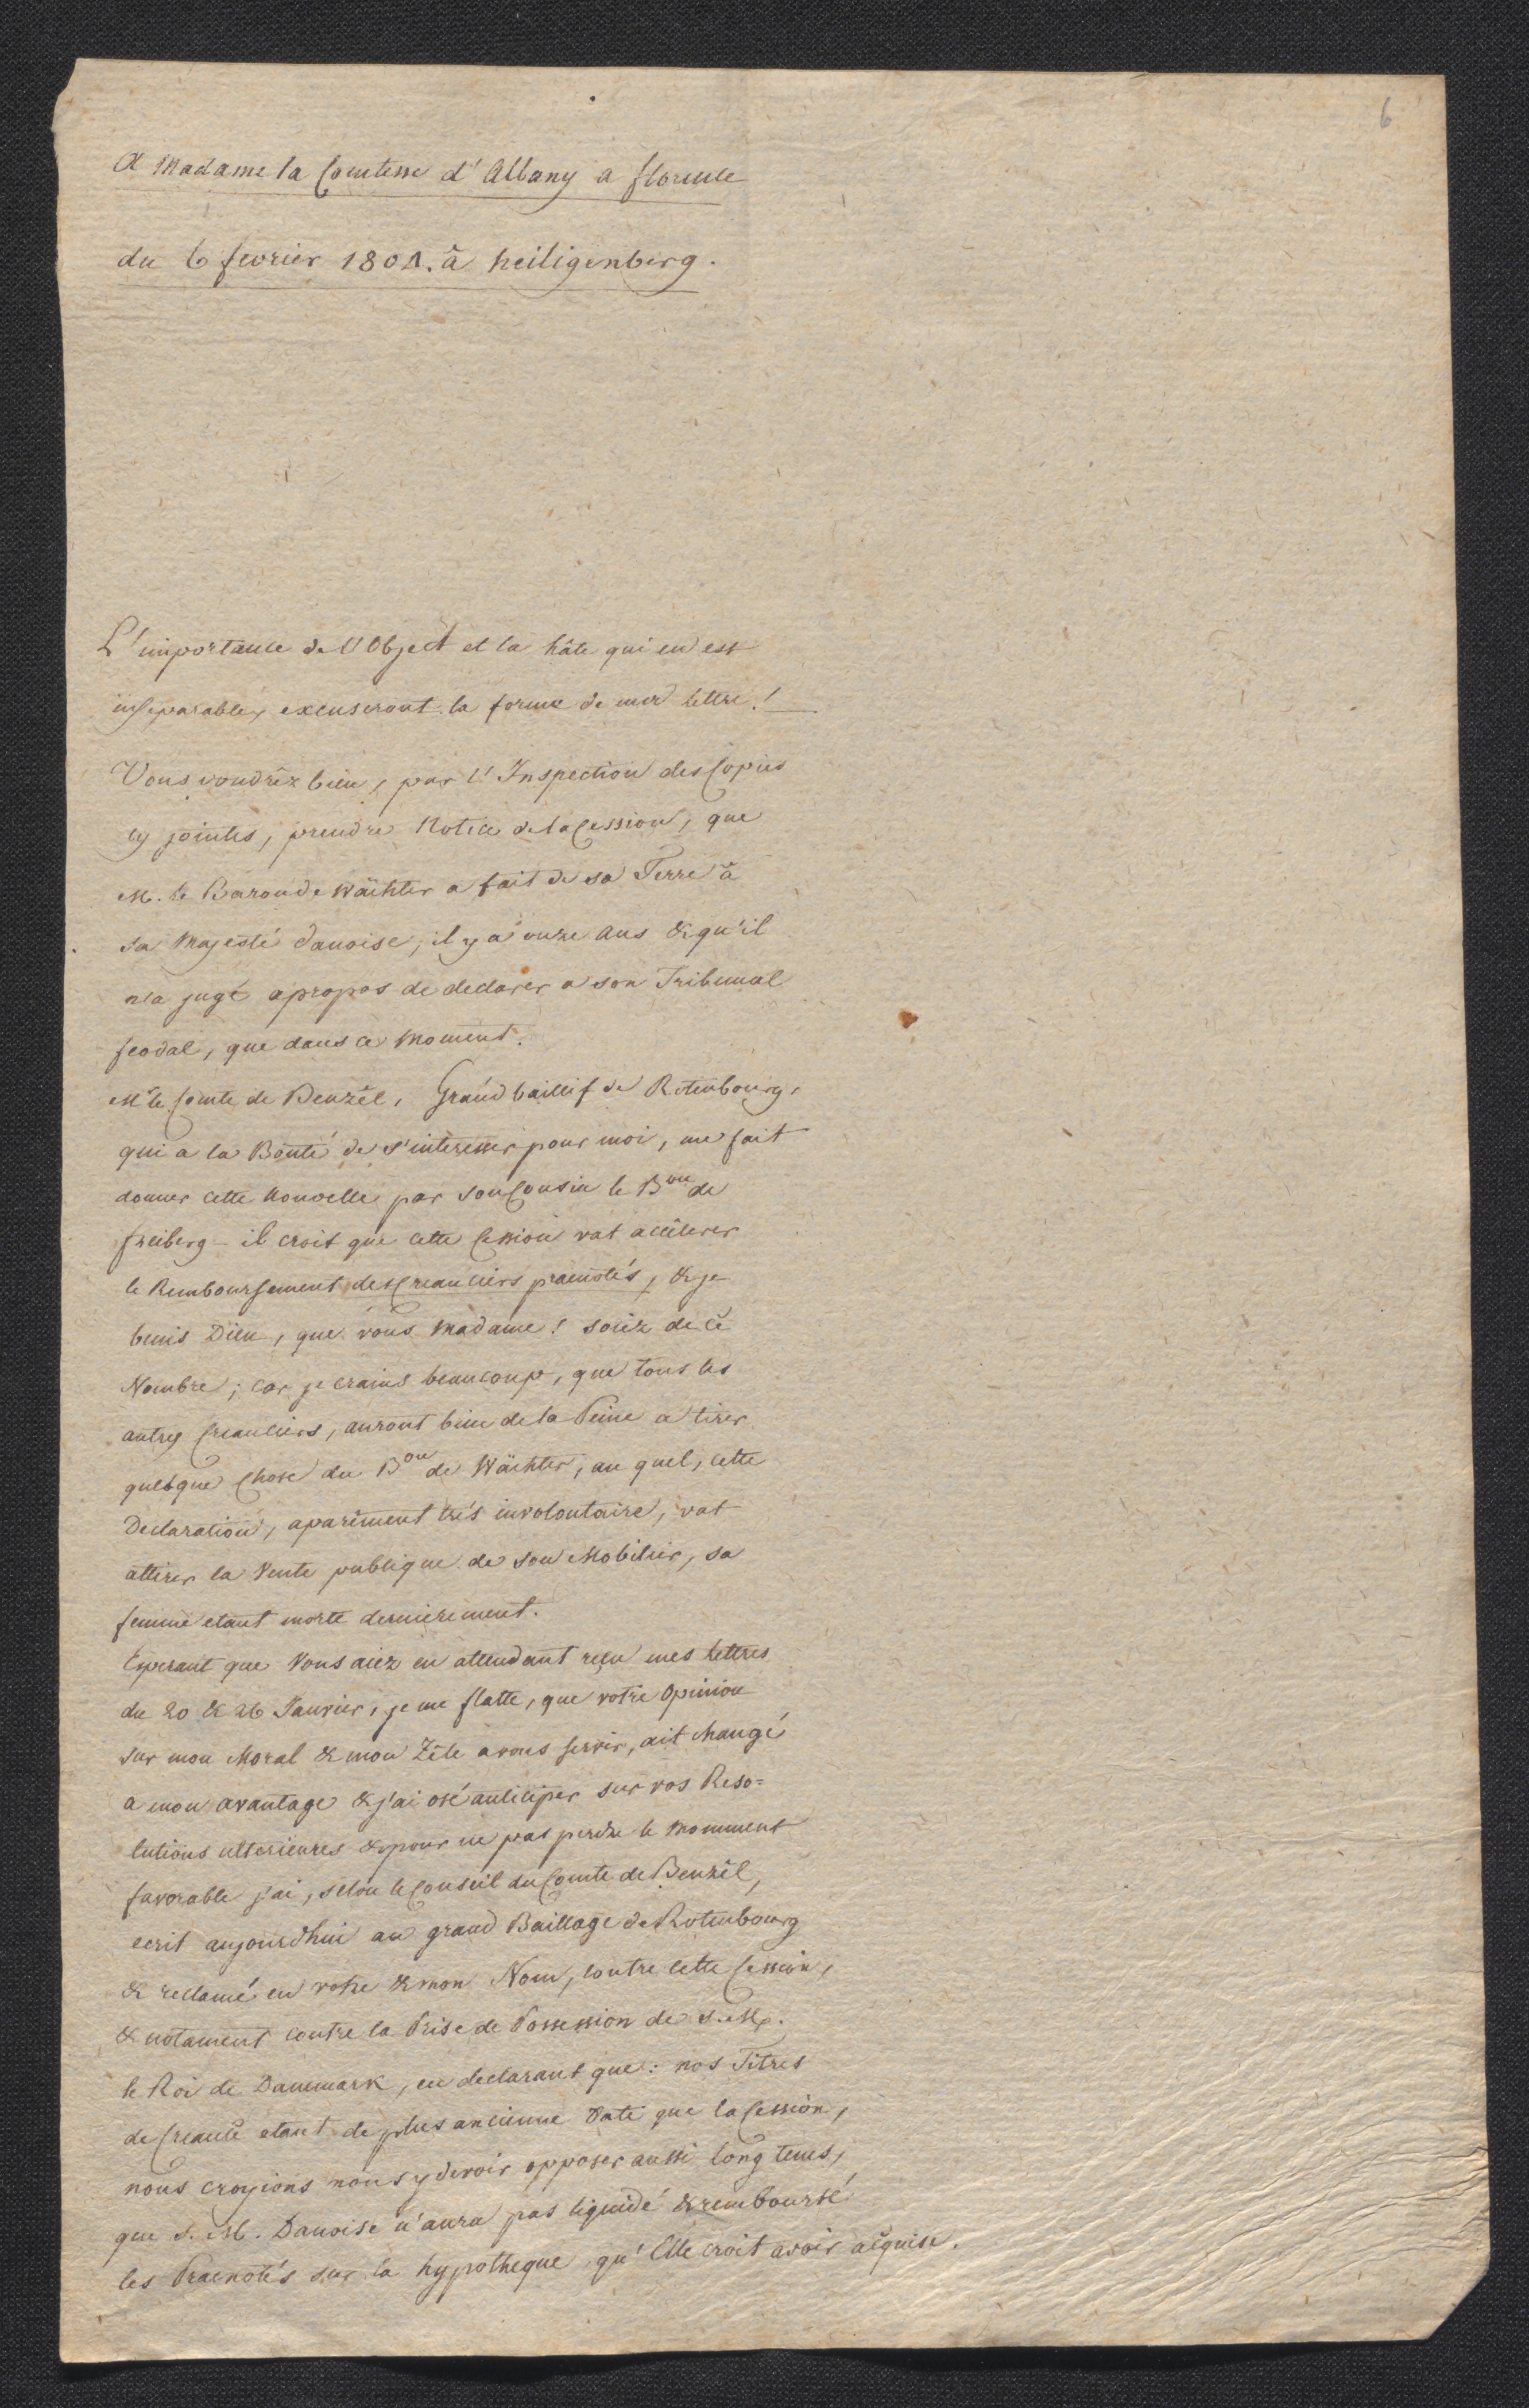 6
A Madame la Comtesse d'Albany a florence
du 6 fevrier 1804. à heiligenberg.
L'importance de l'Object et la hâte qui en est
inseparable, excuseront la forme de mon lettre!
Vous voudrèz bien, par l'Inspection des Copies
cy jointes, prendre Notice de la Cession, que
M. le Baron de Wächter a fait de sa Terre à
sa Majesté danoise, il y a onze ans & qu'il
n'a jugé apropos de declarer a son Tribunal
feodal, que dans ce Moment.
Mr le Comte de Benzèl, Grand baillif de Rotenbourg,
qui a la Bonté de s'interesser pour moi, me fait
donner cette Nouvelle par son Cousin le Bon de
freiberg – il croit que cette Cession vat accèlerer
le Remboursement des Creanciers praenotés, & je
benis Dieu, que vous Madame! soiéz de cè
Nombre; car je crains beaucoup, que tous les
autres Creanciers, auront bien de la Peine a tirer
quelque Chose du Bon de Wächter, au quel, cette
Declaration, aparèment très involontaire, vat
attirer la Vente publique de son Mobilier, sa
femme etant morte dernierement.
Esperant que Vous aiez en attendant reçu mes lettres
du 20 & 26 Janvier, je me flatte, que votre Opinion
sur mon Moral & mon Zèle a vous servir, ait changé
a mon avantage & j'ai osé anticiper sur vos Reso=
lutions ulterieures & pour ne pas perdre le Momment
favorable j'ai, selon le Conseil du Comte de Benzèl,
ecrit aujourdhui au grand Baillage de Rotenbourg
& reclamé en votre & mon Nom, contre cette Cession,
& notament contre la Prise de Possession de S. M.
le Roi de Dannmark, en declarant que: nos Titres
de Creance etant de plus ancienne Date que la Cession,
nous croyions nous y devoir opposer aussi long tems,
que S. M. Danoise n'aura pas liquidé & remboursé
les Praenotés sur la hypotheque qu'Elle croit avoir acquise.